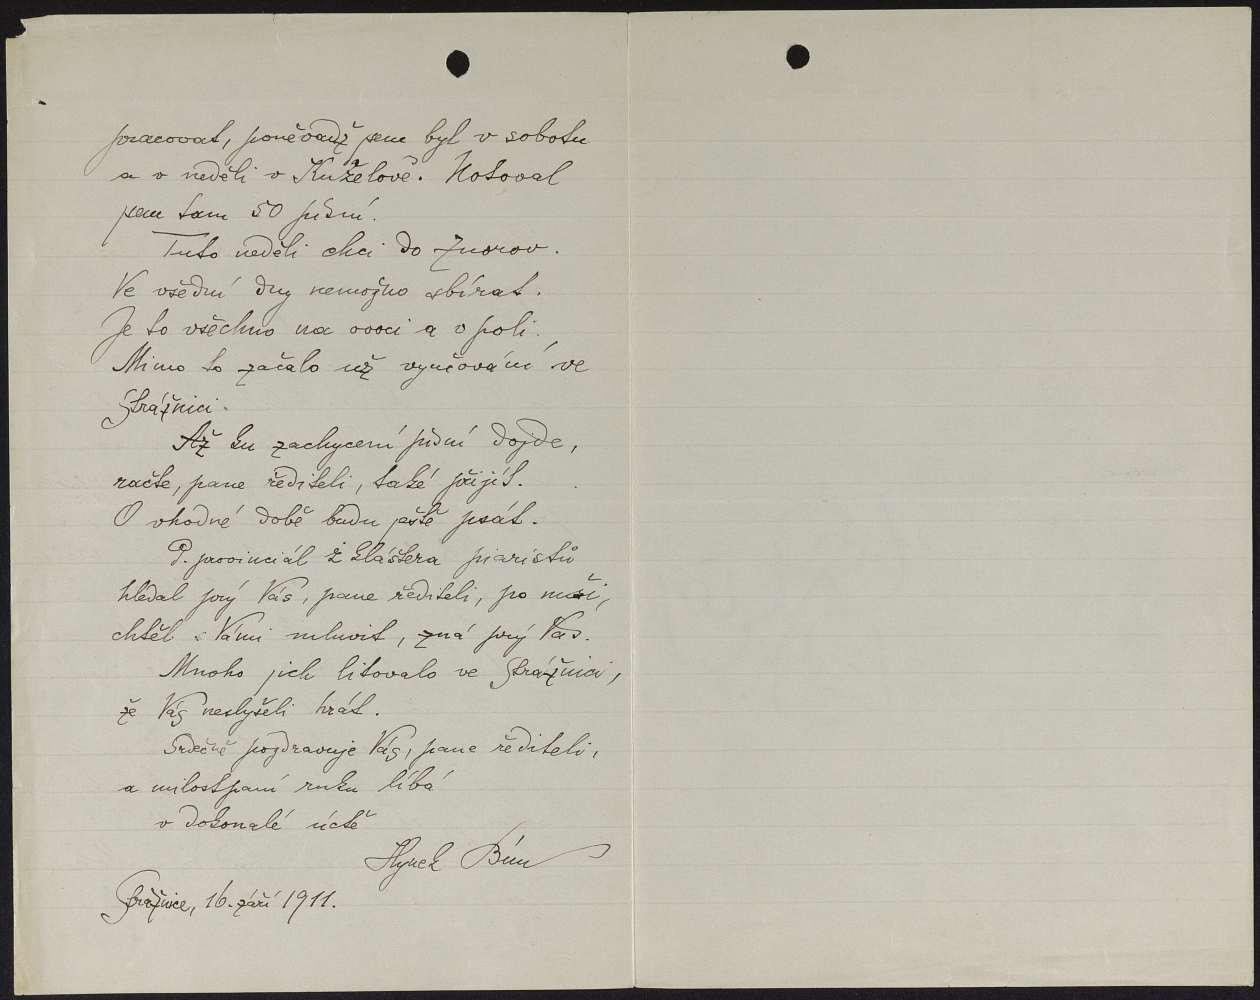 pracovat, poněvadž jsem byl v sobotu
a v neděli v Kuželově. Notoval
jsem tam 50 písní.
Tuto neděli chci do Znorov.
Ve všední dny nemožno sbírat.
Je to všechno na ovoci a v poli.
Mimo to začalo už vyučování ve
Strážnici.
Až ku zachycení písní dojde,
račte, pane řediteli, také přijít.
O vhodné době budu ještě psát.
P. provinciál z kláštera piaristů
hledal prý Vás, pane řediteli, po mši,
chtěl s Vámi mluvit, zná prý Vás.
Mnoho jich litovalo ve Strážnici,
že Vás neslyšeli hrát.
Srdečně pozdravuje Vás, pane řediteli,
a milostpaní ruku líbá
v dokonalé úctě
Hynek Bím
Strážnice, 16. září 1911.